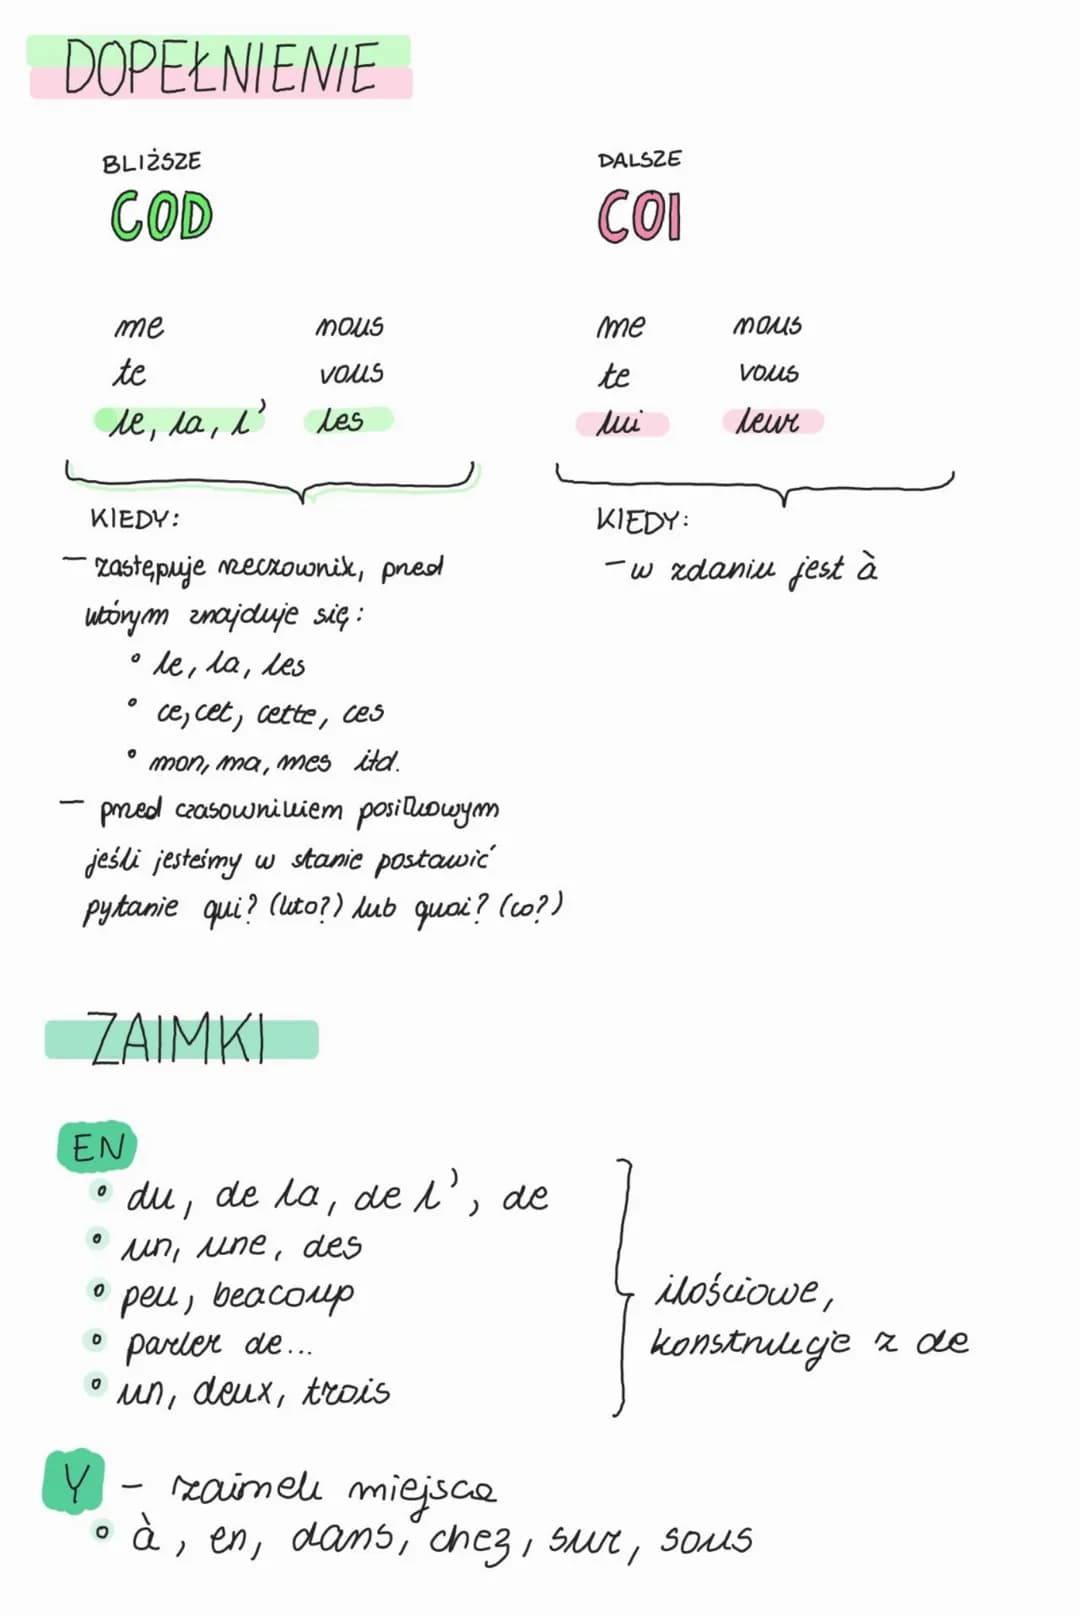 DOPEŁNIENIE
BLIŻSZE
COD
me nous
te vous
le, la, l' les
KIEDY:
- zastępuje rzeczownik, przed
którym znajduje się:
° le, la, les
° ce, cet, cette, ces
° mon, ma, mes itd.
- przed czasownikiem posiłkowym
jeśli jesteśmy w stanie postawić
pytanie qui? (kto?) lub quoi? (co?)
DALSZE
COI
me nous
te vous
lui leur
KIEDY:
- w zdaniu jest à
ZAIMKI
EN
° du, de la, de l', de
° un, une, des
° peu, beacoup
° parler de...
° un, deux, trois
ilościowe,
konstrukcje z de
Y - zaimek miejsca
° à, en, dans, chez, sur, sous